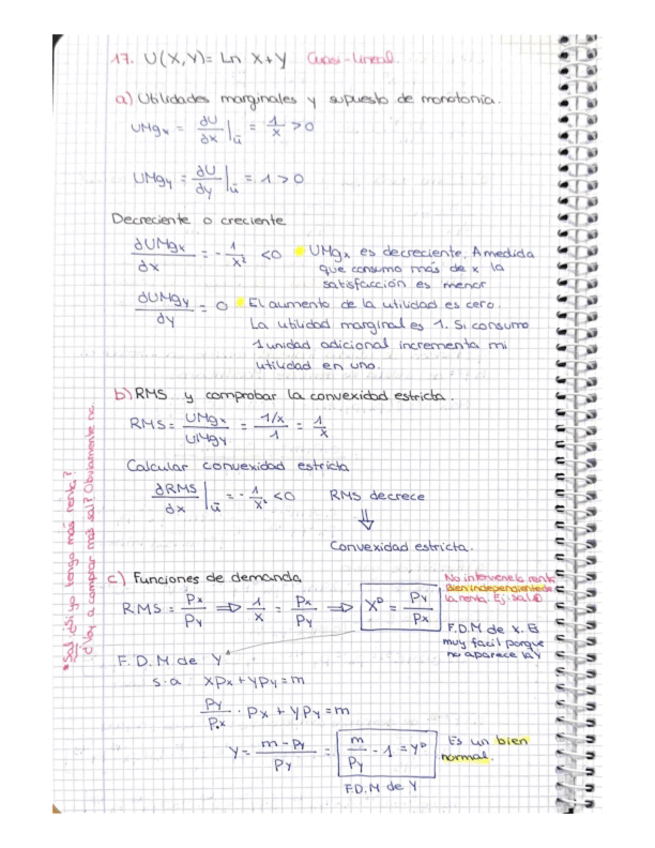 17. U(X,Y)= Ln X+Y Cuasi-lineal.
a) Utilidades marginales y supuesto de monotonía.
UMgx = ∂U/∂x |ū = 1/x >0
UMgy = ∂U/∂y |ū = 1 >0
Decreciente o creciente
∂UMgx/∂x = - 1/x² <0 UMgx es decreciente. A medida
que consumo más de x la
satisfacción es menor
∂UMgy/∂y = 0 El aumento de la utilidad es cero.
La utilidad marginal es 1. Si consumo
1 unidad adicional incrementa mi
utilidad en uno.
b) RMS y comprobar la convexidad estricta.
RMS = UMgx/UMgy = 1/x/1 = 1/x
Calcular convexidad estricta
∂RMS/∂x |ū = - 1/x² <0 RMS decrece
⇓
Convexidad estricta.
c) Funciones de demanda
RMS = Px/Py ⇒ 1/x = Px/Py ⇒ Xᴰ = Py/Px
No interviene la renta
Bien independiente de
la renta. Ej: sal
F.D.M de X. Es
muy fácil porque
no aparece la Y
F.D.M de Y
s.a XPx + YPy = m
Py/Px · Px + YPy = m
Y = m - Py/Py = m/Py - 1 = Yᴰ Es un bien
normal.
F.D.M de Y
*Sal: ¿Si yo tengo más renta?
¿Voy a comprar más sal? Obviamente no.